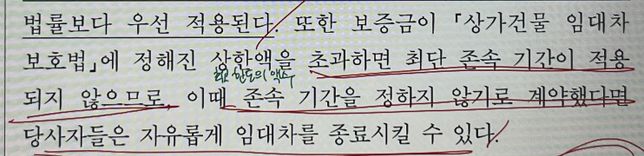 법률보다 우선 적용된다. 또한 보증금이 「상가건물 임대차
보호법」에 정해진 상한액을 초과하면 최단 존속 기간이 적용
되지 않으므로, 이때 존속 기간을 정하지 않기로 계약했다면
당사자들은 자유롭게 임대차를 종료시킬 수 있다.